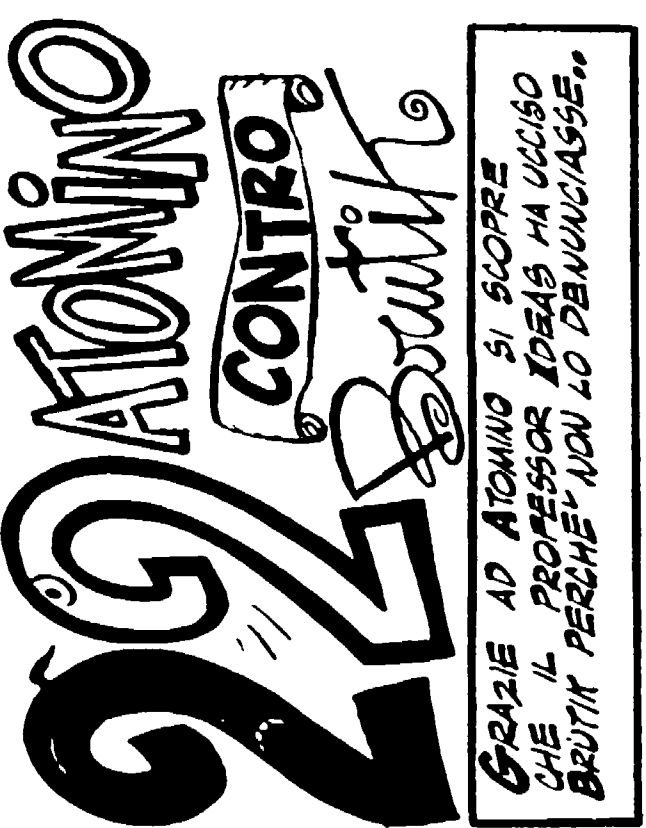 22 ATOMINO
CONTRO
Brutik
GRAZIE AD ATOMINO SI SCOPRE
CHE IL PROFESSOR IDEAS HA UCCISO
BRUTIK PERCHE' NON LO DENUNCIASSE..